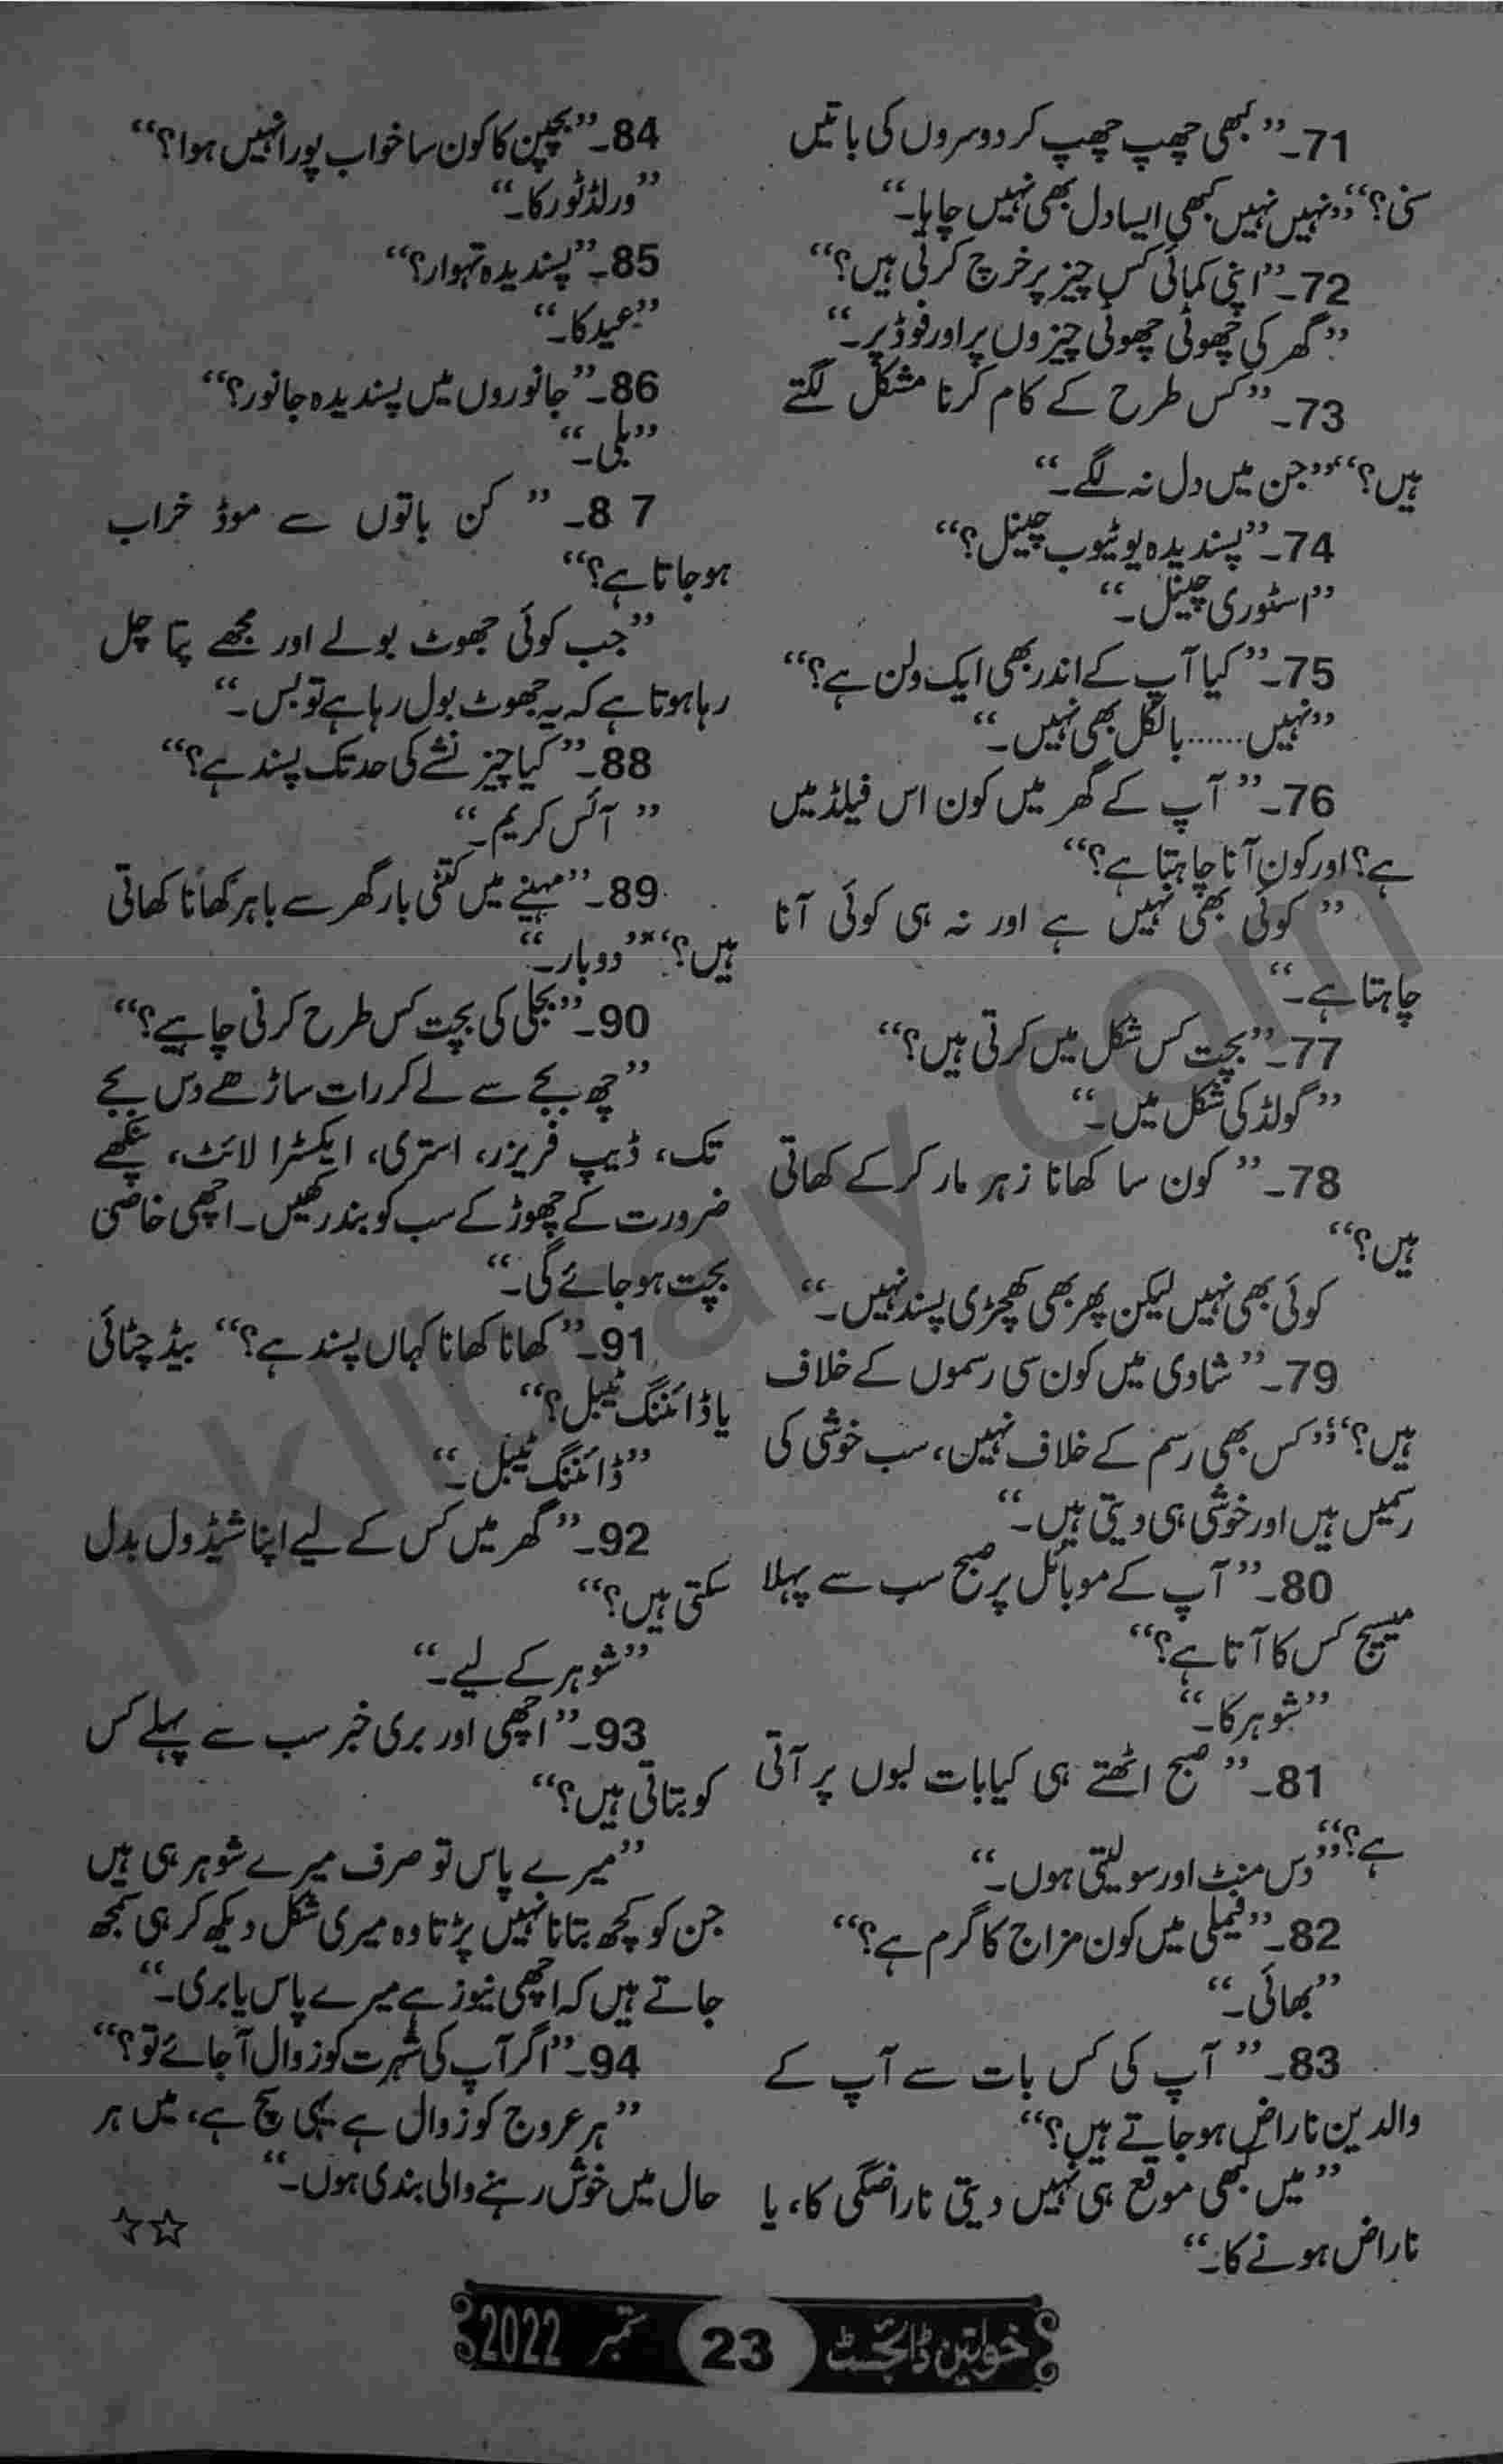 71۔ ”کبھی چھپ چھپ کر دوسروں کی باتیں
سنی؟“ ”نہیں نہیں کبھی ایسا دل بھی نہیں چاہا۔“
72۔ ”اپنی کمائی کس چیز پر خرچ کرتی ہیں؟“
”گھر کی چھوٹی چھوٹی چیزوں پر اور فوڈ پر۔“
73۔ ”کس طرح کے کام کرنا مشکل لگتے
ہیں؟“ ”جن میں دل نہ لگے۔“
74۔ ”پسندیدہ یوٹیوب چینل؟“
”اسٹوری چینل۔“
75۔ ”کیا آپ کے اندر بھی ایک ولن ہے؟“
”نہیں...... بالکل بھی نہیں۔“
76۔ ”آپ کے گھر میں کون اس فیلڈ میں
ہے؟ اور کون آنا چاہتا ہے؟“
”کوئی بھی نہیں ہے اور نہ ہی کوئی آنا
چاہتا ہے۔“
77۔ ”بچت کس شکل میں کرتی ہیں؟“
”گولڈ کی شکل میں۔“
78۔ ”کون سا کھانا زہر مار کر کے کھاتی
ہیں؟“
کوئی بھی نہیں لیکن پھر بھی کھچڑی پسند نہیں۔“
79۔ ”شادی میں کون سی رسموں کے خلاف
ہیں؟“ ”کس بھی رسم کے خلاف نہیں، سب خوشی کی
رسمیں ہیں اور خوشی ہی دیتی ہیں۔“
80۔ ”آپ کے موبائل پر صبح سب سے پہلا
میسج کس کا آتا ہے؟“
”شوہر کا۔“
81۔ ”صبح اٹھتے ہی کیا بات لبوں پر آتی
ہے؟“ ”دس منٹ اور سو لیتی ہوں۔“
82۔ ”فیملی میں کون مزاج کا گرم ہے؟“
”بھائی۔“
83۔ ”آپ کی کس بات سے آپ کے
والدین ناراض ہو جاتے ہیں؟“
”میں کبھی موقع ہی نہیں دیتی ناراضگی کا، یا
ناراض ہونے کا۔“
84۔ ”بچپن کا کون سا خواب پورا نہیں ہوا؟“
”ورلڈ ٹور کا۔“
85۔ ”پسندیدہ تہوار؟“
”عید کا۔“
86۔ ”جانوروں میں پسندیدہ جانور؟“
”بلی۔“
87۔ ”کن باتوں سے موڈ خراب
ہو جاتا ہے؟“
”جب کوئی جھوٹ بولے اور مجھے پتا چل
رہا ہوتا ہے کہ یہ جھوٹ بول رہا ہے تو بس۔“
88۔ ”کیا چیز نشے کی حد تک پسند ہے؟“
”آئس کریم۔“
89۔ ”مہینے میں کتنی بار گھر سے باہر کھانا کھاتی
ہیں؟“ ”دو بار۔“
90۔ ”بجلی کی بچت کس طرح کرنی چاہیے؟“
”چھ بجے سے لے کر رات ساڑھے دس بجے
تک، ڈیپ فریزر، استری، ایکسٹرا لائٹ، پنکھے
ضرورت کے چھوڑ کے سب کو بند رکھیں۔ اچھی خاصی
بچت ہو جائے گی۔“
91۔ ”کھانا کھانا کہاں پسند ہے؟“ بیڈ چٹائی
یا ڈائننگ ٹیبل؟“
”ڈائننگ ٹیبل۔“
92۔ ”گھر میں کس کے لیے اپنا شیڈول بدل
سکتی ہیں؟“
”شوہر کے لیے۔“
93۔ ”اچھی اور بری خبر سب سے پہلے کس
کو بتاتی ہیں؟“
”میرے پاس تو صرف میرے شوہر ہی ہیں
جن کو کچھ بتانا نہیں پڑتا وہ میری شکل دیکھ کر ہی سمجھ
جاتے ہیں کہ اچھی نیوز ہے میرے پاس یا بری۔“
94۔ ”اگر آپ کی شہرت کو زوال آ جائے تو؟“
”ہر عروج کو زوال ہے یہی سچ ہے، میں ہر
حال میں خوش رہنے والی بندی ہوں۔“
☆☆
خواتین ڈائجسٹ 23 ستمبر 2022
pklibrary.com